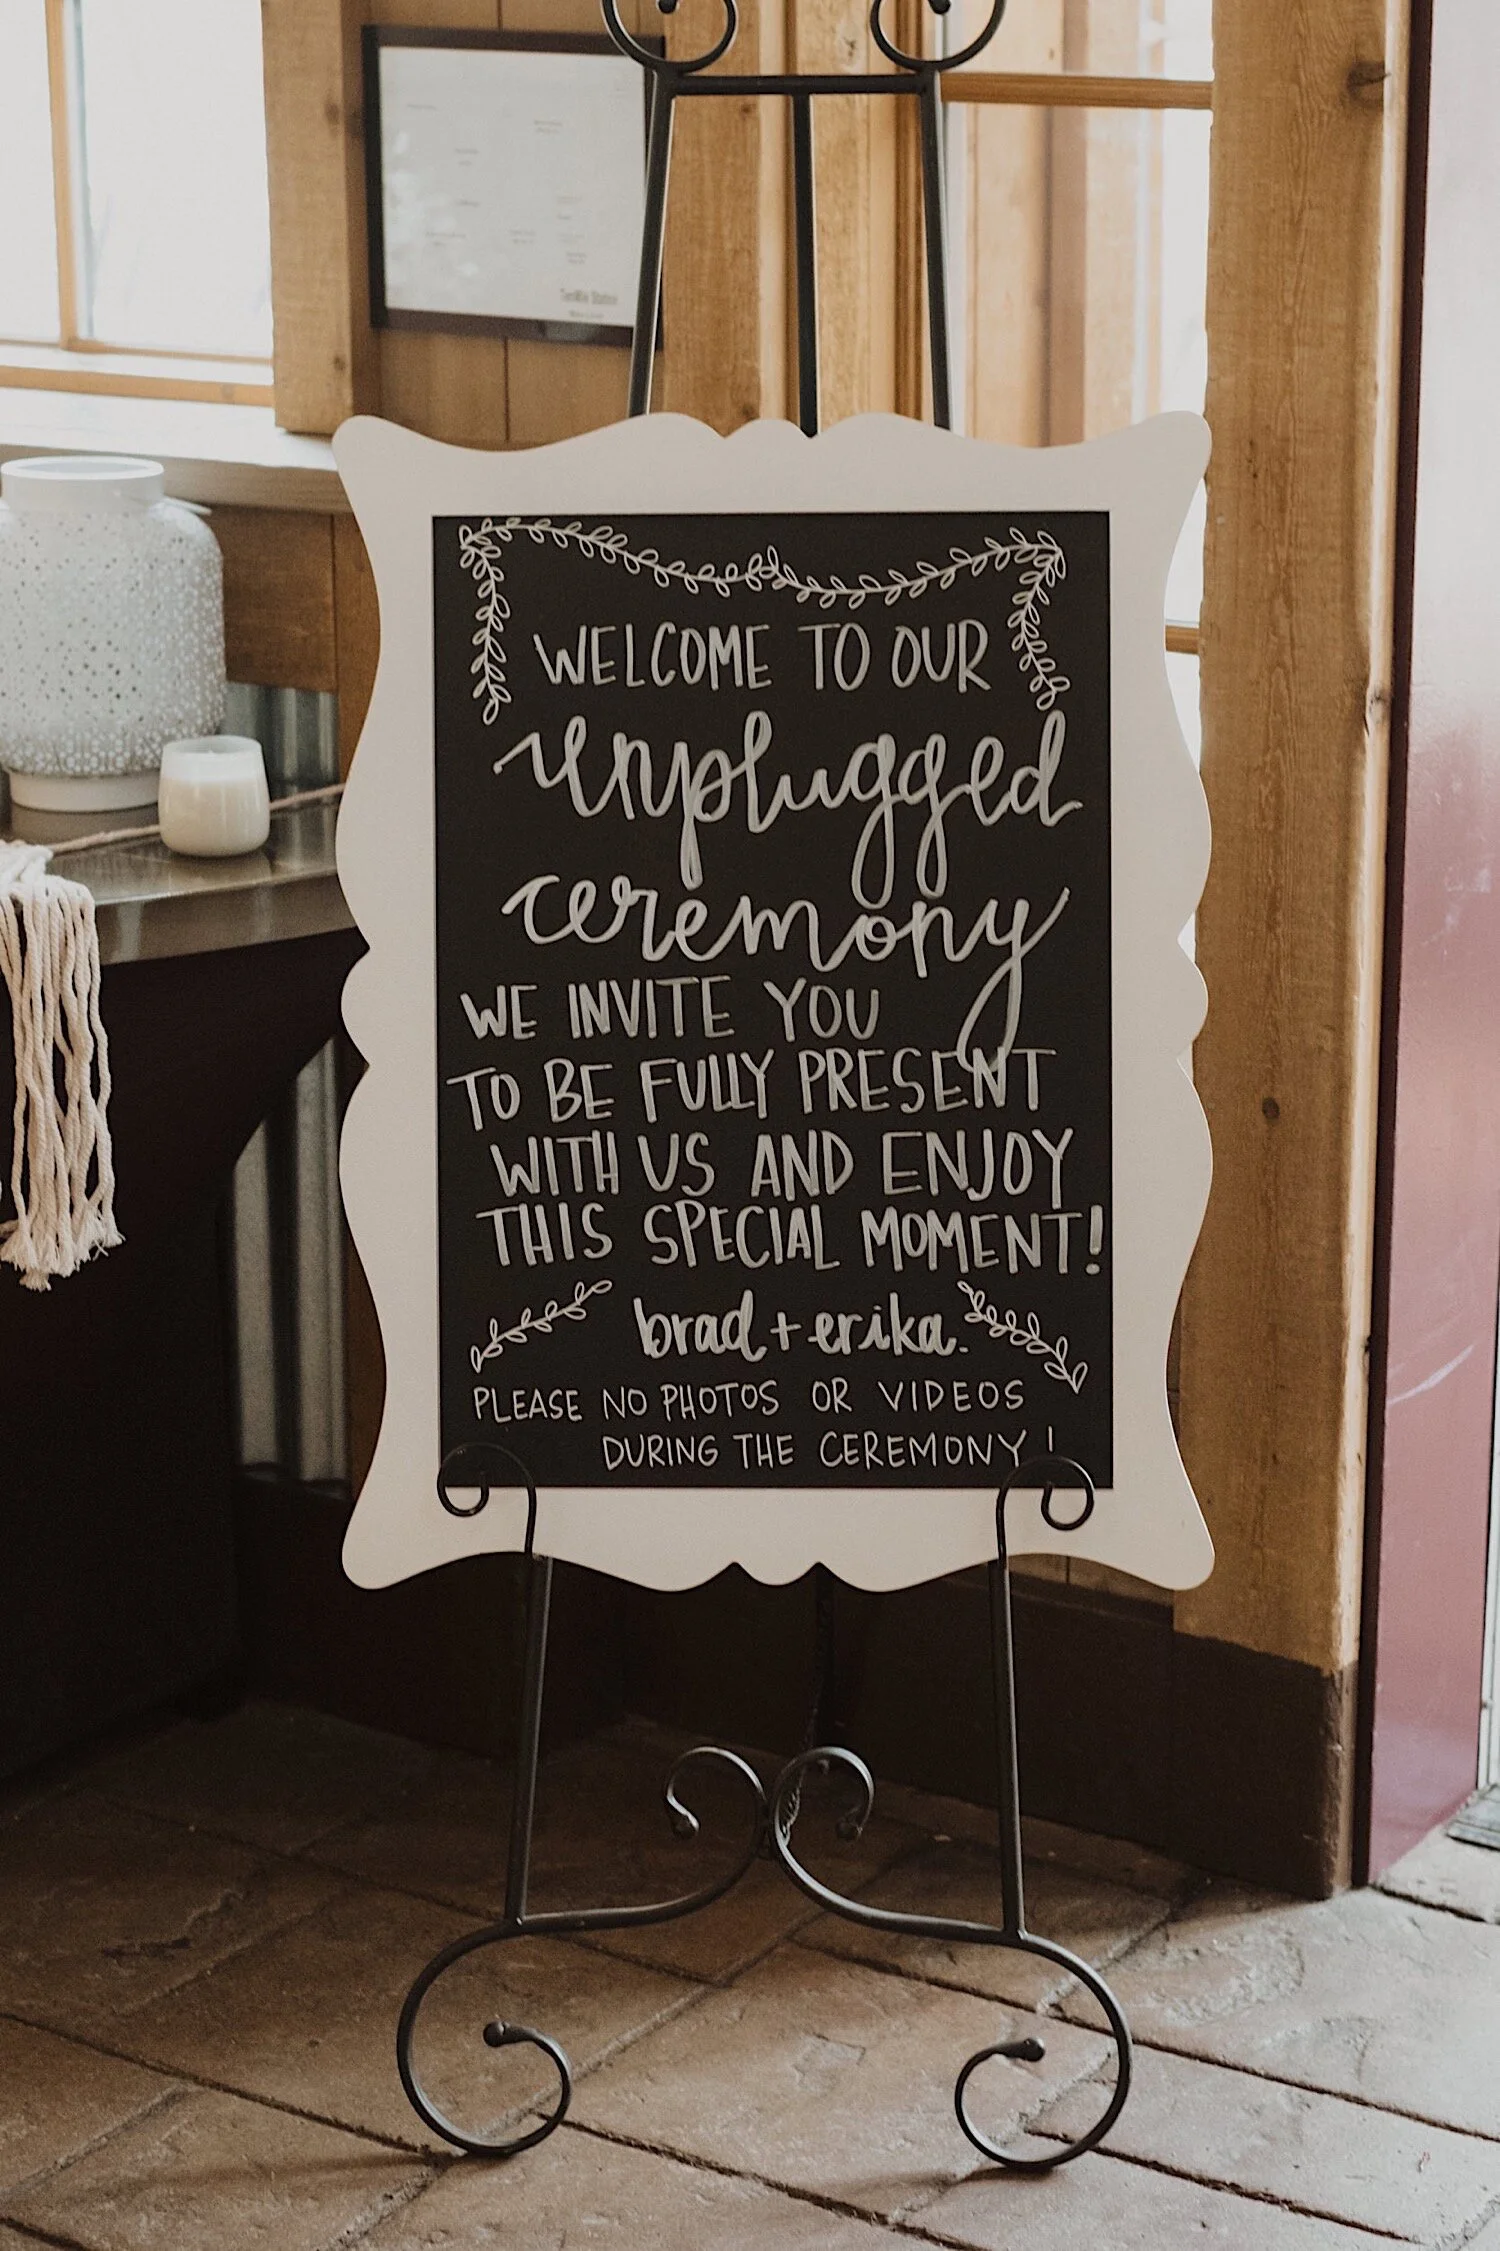 WELCOME TO OUR
unplugged
ceremony
WE INVITE YOU
TO BE FULLY PRESENT
WITH US AND ENJOY
THIS SPECIAL MOMENT!
brad + erika.
PLEASE NO PHOTOS OR VIDEOS
DURING THE CEREMONY!